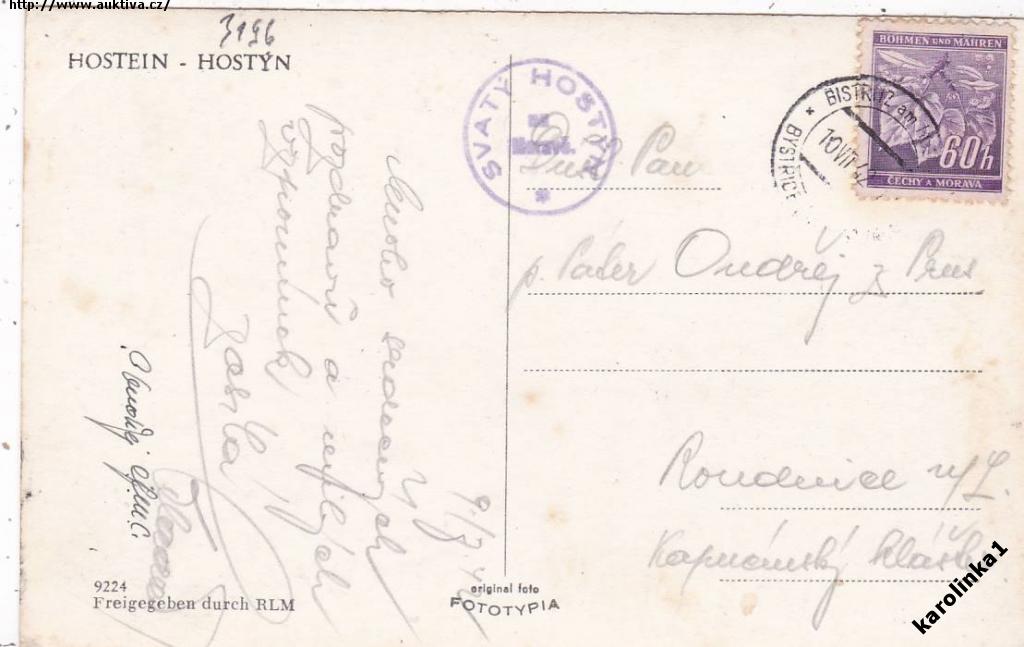 http://www.auktiva.cz/
3196
HOSTEIN - HOSTÝN
Mnoho srdečných
pozdravů a milých
vzpomínek
9/7 42
9224
Freigegeben durch RLM
original foto
FOTOTYPIA
SVATÝ HOSTÝN
BÖHMEN UND MÄHREN
60h
ČECHY A MORAVA
BISTRITZ am
BYSTŘICE
10 VII 42
Pan
p. Páter Ondřej z Prus
Roudnice n/L.
Kapucínský klášter
karolinka1